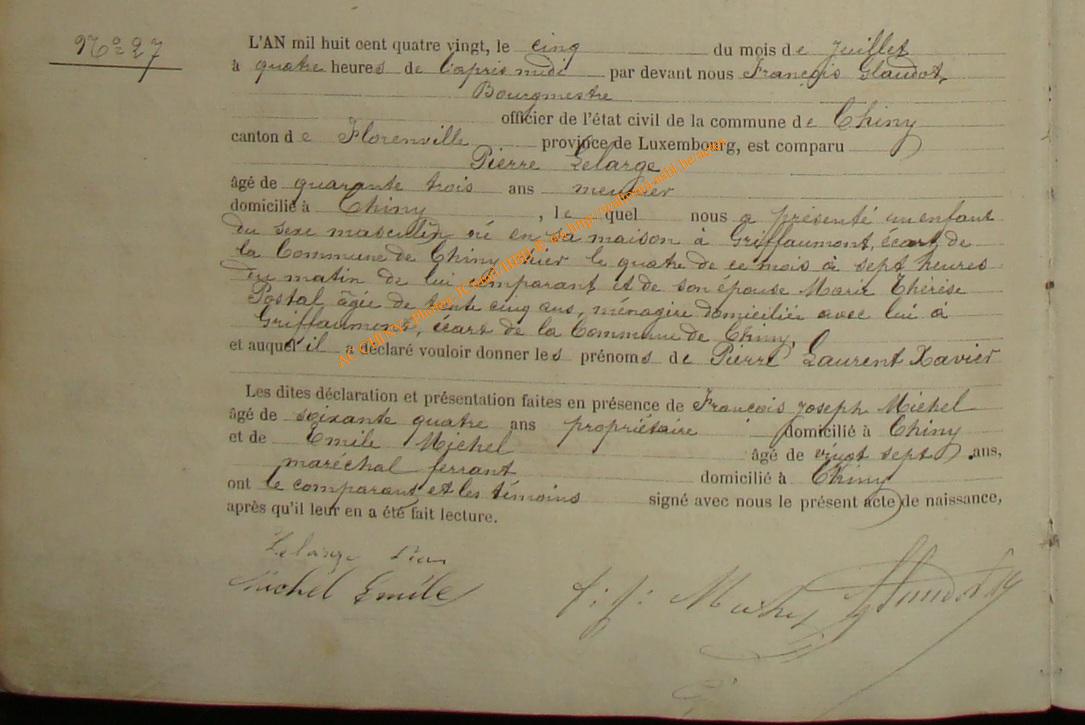 N° 27
L'AN mil huit cent quatre vingt, le cinq du mois de juillet
à quatre heures de l'après midi par devant nous François Glaudot,
Bourgmestre
officier de l'état civil de la commune de Chiny
canton de Florenville province de Luxembourg, est comparu
Pierre Lelarge
âgé de quarante trois ans meunier
domicilié à Chiny, lequel nous a présenté un enfant
du sexe masculin né en sa maison à Griffaumont, écart de
la Commune de Chiny hier le quatre de ce mois à sept heures
du matin de lui comparant et de son épouse Marie Thérèse
Postal âgée de trente cinq ans, ménagère domiciliée avec lui à
Griffaumont, écart de la Commune de Chiny,
et auquel il a déclaré vouloir donner les prénoms de Pierre Laurent Xavier
Les dites déclaration et présentation faites en présence de François Joseph Michel
âgé de soixante quatre ans propriétaire domicilié à Chiny
et de Emile Michel âgé de vingt sept ans,
maréchal ferrant domicilié à Chiny
ont le comparant et les témoins signé avec nous le présent acte de naissance,
après qu'il leur en a été fait lecture.
Lelarge
Michel Emile f. j. Michel Glaudot